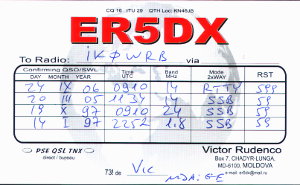 CQ 16 . ITU 29 QTH Loc: KN46JB
ER5DX
To Radio: IKØWRB via
Confirming QSO/SWL
DAY MONTH YEAR TIME UTC BAND MHz MODE 2xWAY RST
24 IX 06 0910 14 RTTY 599
20 III 05 1134 14 SSB 59
19 X 97 0910 24 SSB 59
14 I 97 2252 1.8 SSB 59
PSE QSL TNX
direct / bureau
Victor Rudenco
Box 7, CHADYR-LUNGA,
MD-6100, MOLDOVA
73! de Vic